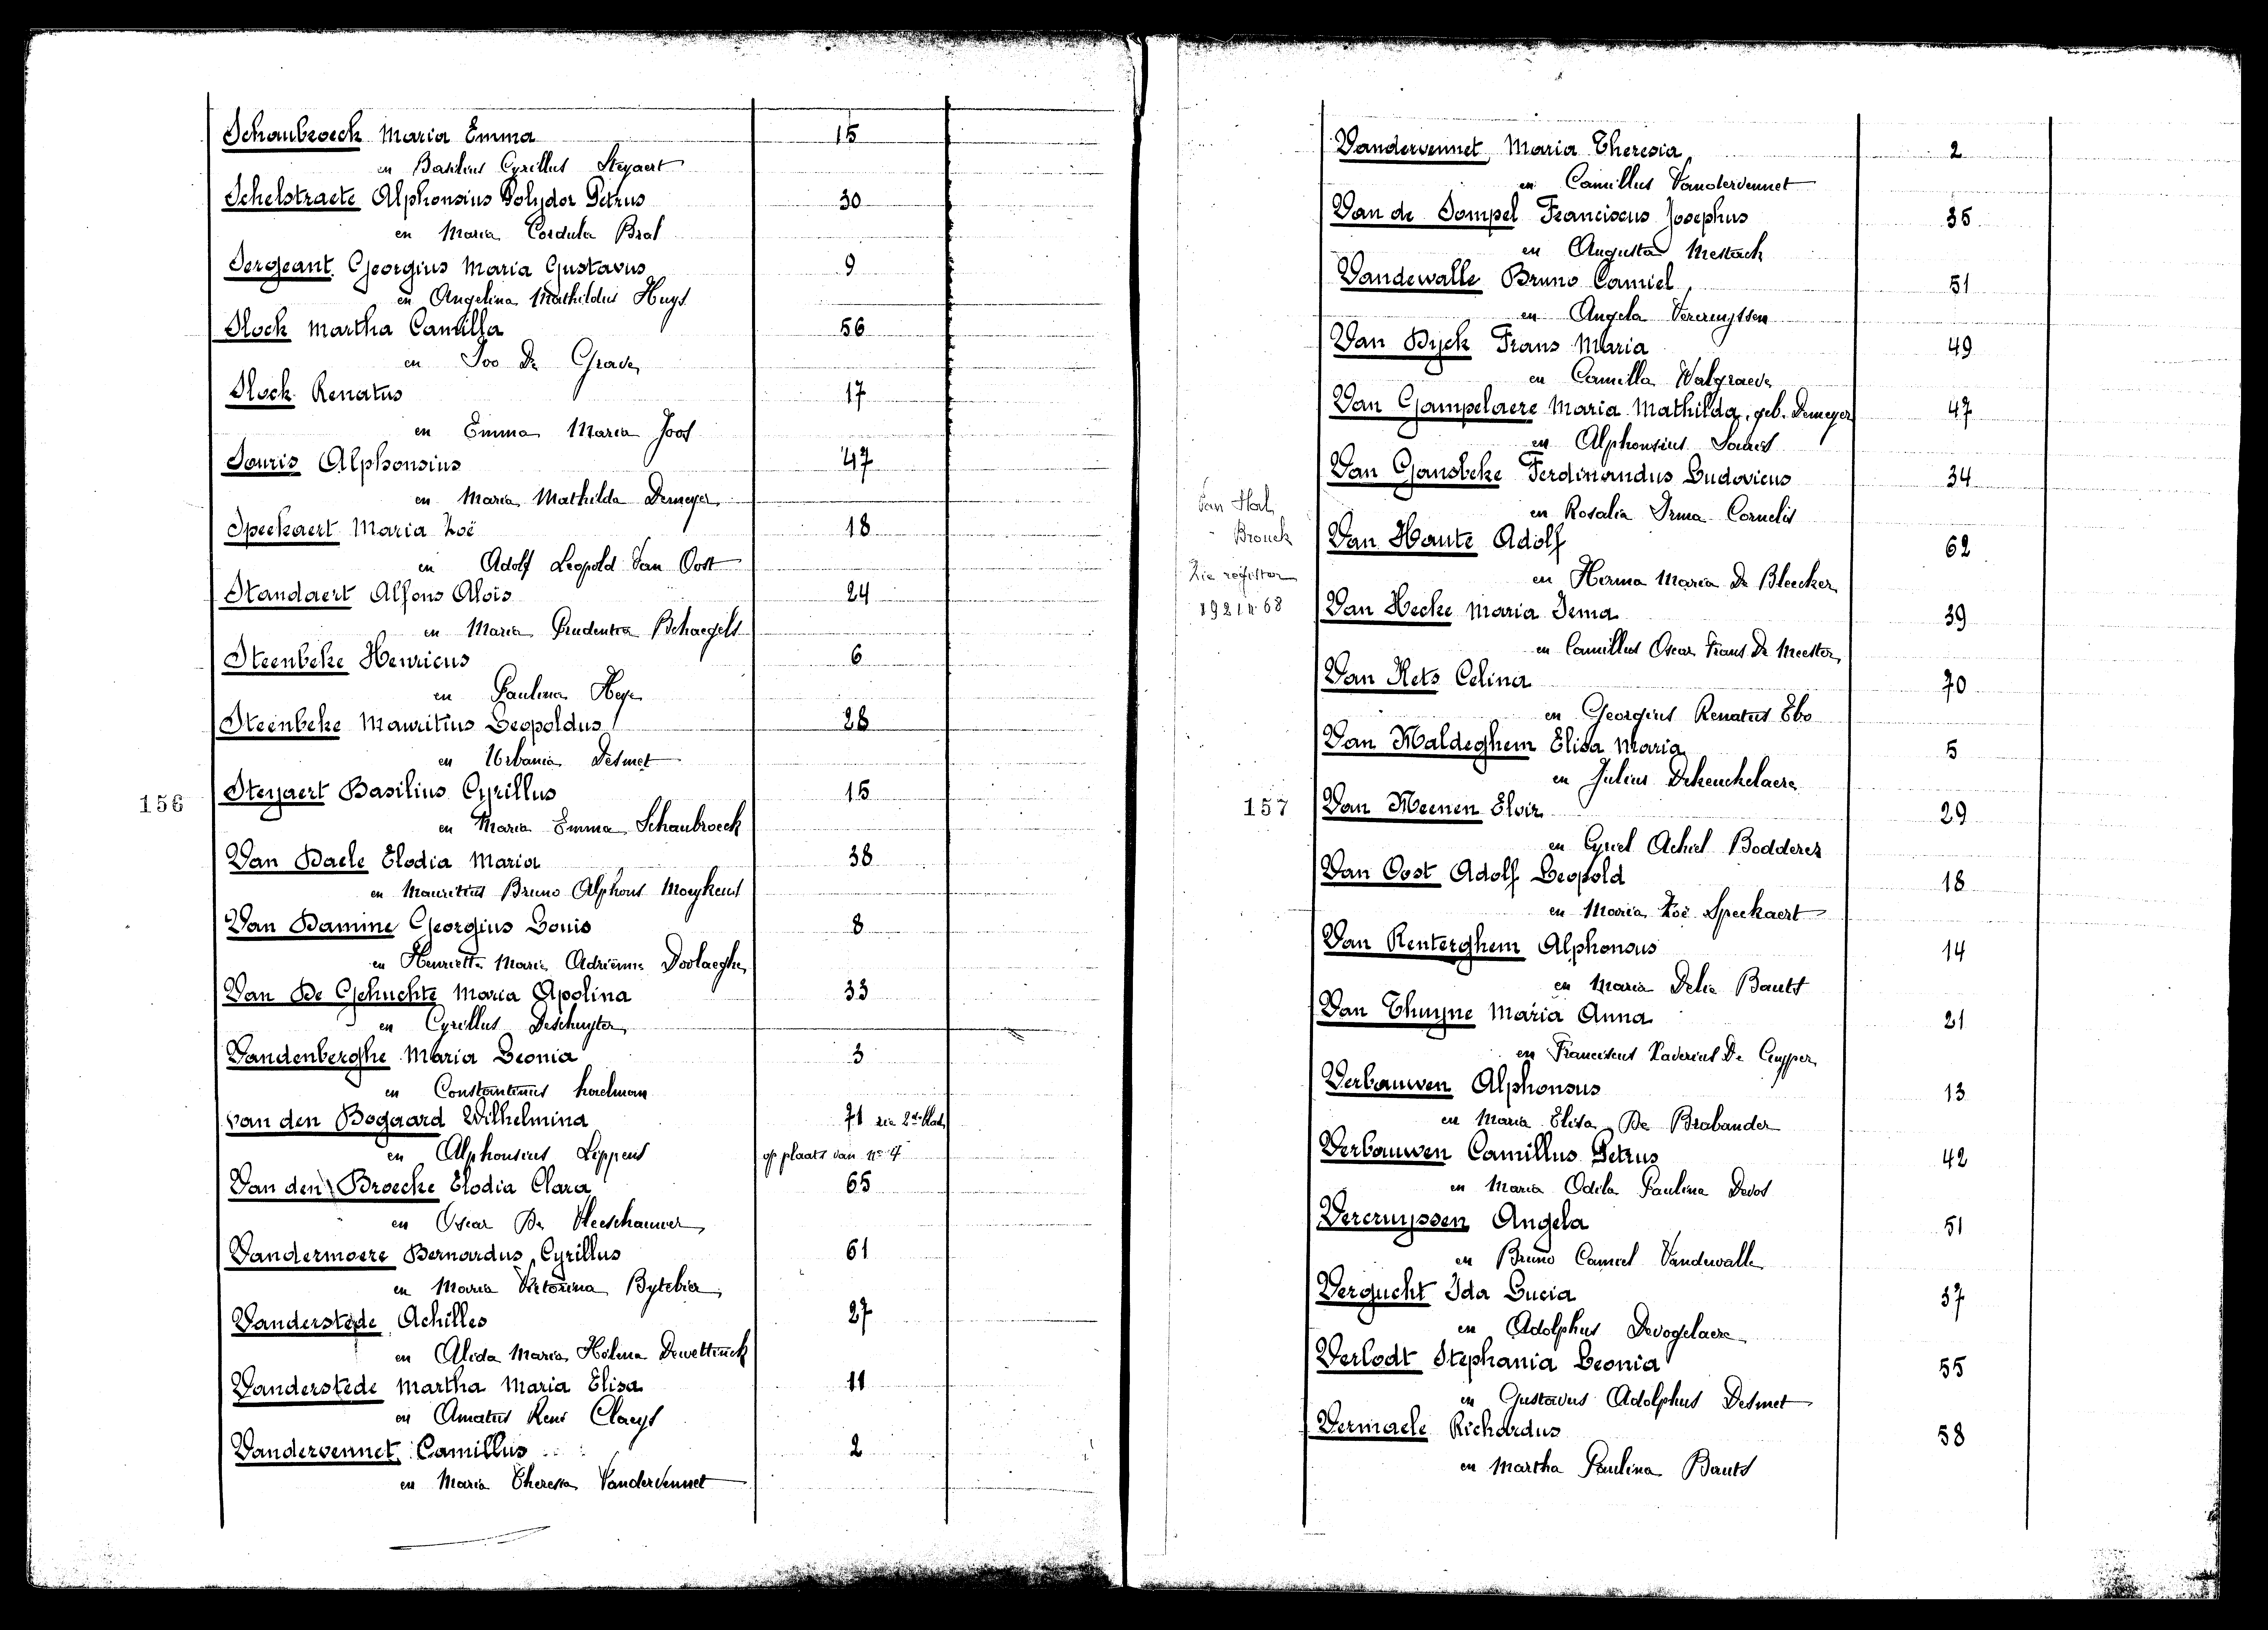 Schaubroeck Maria Emma 15
en Basilius Cyrillus Steyaert
Schelstraete Alphonsius Polydor Petrus 30
en Maria Cordula Bral
Sergeant Georgius Maria Gustavus 9
en Angelina Mathildis Huys
Slock Martha Camilla 56
en Ivo De Grave
Slock Renatus 17
en Emma Maria Joos
Souris Alphonsius 47
en Maria Mathilda Demeyer
Speckaert Maria Zoë 18
en Adolf Leopold Van Oost
Standaert Alfons Alois 24
en Maria Prudentia Behaegels
Steenbeke Henricus 6
en Paulina Heye
Steenbeke Mauritius Leopoldus 28
en Urbania Desmet
156
Steyaert Basilius Cyrillus 15
en Maria Emma Schaubroeck
Van Daele Elodia Maria 38
en Mauritius Bruno Alphons Moeykens
Van Damme Georgius Louis 8
en Henrietta Maria Adrienna Doolaeghe
Van De Gehuchte Maria Apolina 33
en Cyrillus Deschuyter
Vandenberghe Maria Leonia 3
en Constantinus
van den Bogaard Wilhelmina 71 zie 2de blad
en Alphonsius Lippens op plaats van no 4
Van den Broecke Elodia Clara 65
en Oscar De Vleeschauwer
Vandermoere Bernardus Cyrillus 61
en Maria Victorina Bytebier
Vanderstede Achilles 27
en Alida Maria Helena Dewettinck
Vanderstede Martha Maria Elisa 11
en Amatus René Claeys
Vandervennet Camillus 2
en Maria Theresia Vandervennet
Vandervennet Maria Theresia 2
en Camillus Vandervennet
Van de Sompel Franciscus Josephus 35
en Augusta Mestach
Vandewalle Bruno Camiel 51
en Angela Vercruyssen
Van Dyck Frans Maria 49
en Camilla Walgraeve
Van Gampelaere Maria Mathilda, geb. Demeyer 47
en Alphonsius Souris
Van Gansbeke Ferdinandus Ludovicus 34
en Rosalia Irma Cornelis
Van Houte Adolf 62
en Herma Maria De Bleecker
Van
Brouck
Zie register
1921 n 68
Van Hecke Maria Irma 39
en Camillus Oscar Frans De Meester
Van Kets Celina 70
en Georgius Renatus Ebo
Van Maldeghem Elisa Maria 5
en Julius Dekeuckelaere
157
Van Meenen Elvir 29
en Cyriel Achiel Bodderez
Van Oost Adolf Leopold 18
en Maria Zoë Speckaert
Van Renterghem Alphonsus 14
en Maria Delia Bauts
Van Thuyne Maria Anna 21
en Franciscus Xaverius De Cuyper
Verbauwen Alphonsus 13
en Maria Elisa De Brabander
Verbauwen Camillus Petrus 42
en Maria Odila Paulina Devos
Vercruyssen Angela 51
en Bruno Camiel Vandewalle
Vergucht Ida Lucia 37
en Adolphus Devogelaere
Verlodt Stephania Leonia 55
en Gustavus Adolphus Desmet
Vermaele Richardus 58
en Martha Paulina Bauts